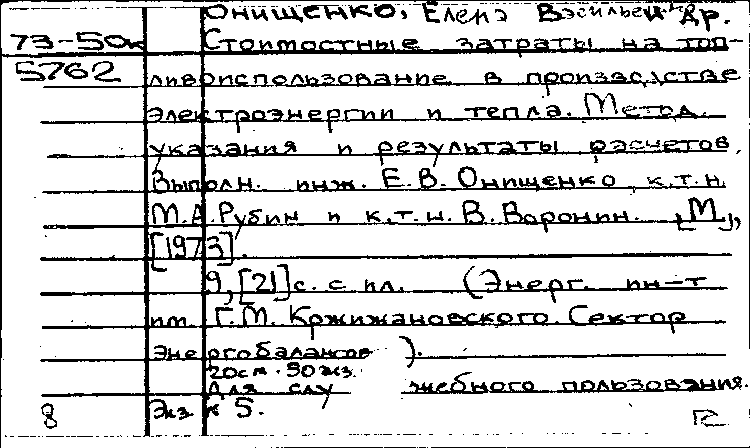 Онищенко, Елена Васильев. и др.
73-50к Стоимостные затраты на топ-
5762 ливоиспользование в производстве
электроэнергии и тепла. Метод.
указания и результаты расчетов.
Выполн. инж. Е.В. Онищенко, к.т.н.
М.А. Рубин и к.т.н. В. Воронин. [М],
[1973].
9, [21] с. с ил. (Энерг. ин-т
им. Г.М. Кржижановского. Сектор
энергобалансов).
20см. 50 экз.
Для служебного пользования.
8 Экз К 5.